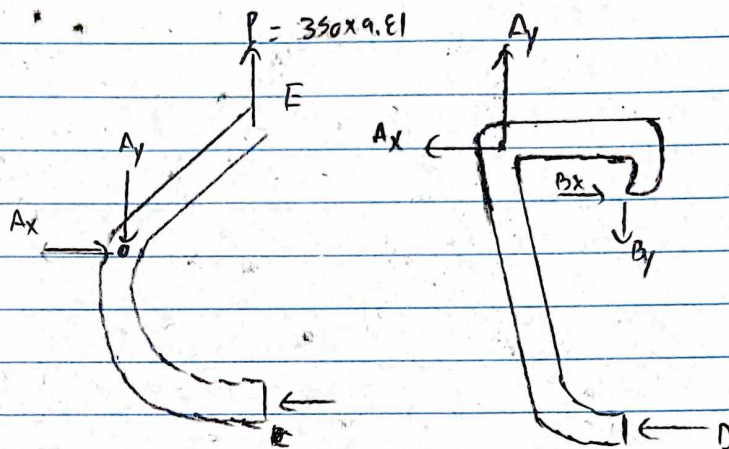 P = 350x9.81
E
Ay
Ax
Ay
Ax
Bx
By
D